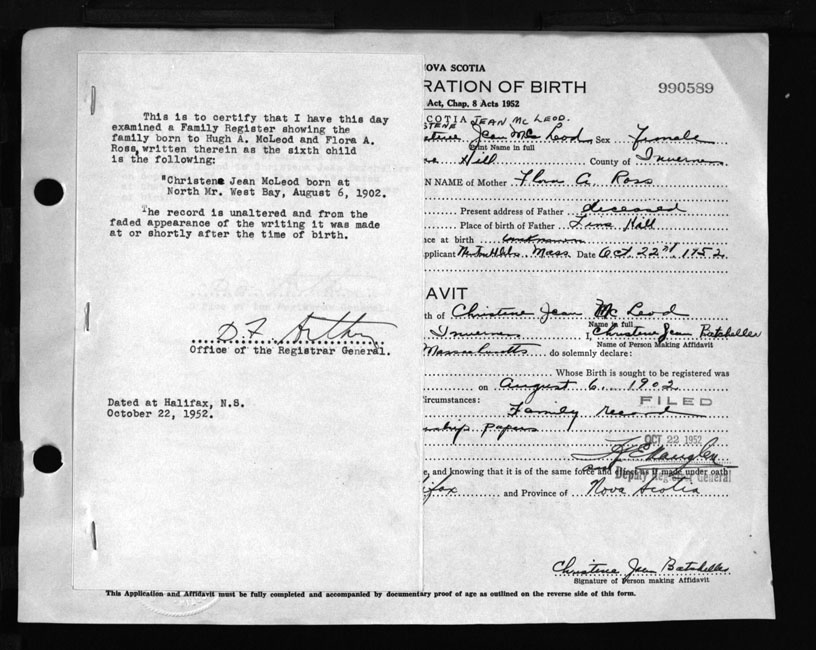 This is to certify that I have this day
examined a Family Register showing the
family born to Hugh A. McLeod and Flora A.
Ross, written therein as the sixth child
is the following:
"Christene Jean McLeod born at
North Mr. West Bay, August 6, 1902.
The record is unaltered and from the
faded appearance of the writing it was made
at or shortly after the time of birth.
Office of the Registrar General.
Dated at Halifax, N.S.
October 22, 1952.
OVA SCOTIA
RATION OF BIRTH
990589
Act, Chap. 8 Acts 1952
COTIA JEAN MC LEOD.
STENE
Jean Mc Leod Sex Female
Print Name in full
Hill County of Inverness
N NAME of Mother Flora A. Ross
Present address of Father deceased
Place of birth of Father Hill
ce at birth
pplicant Mass. Date Oct. 22nd, 1952
AVIT
th of Christene Jean Mc Leod
Name in full
Inverness I, Christene Jean Batcheller
Name of Person Making Affidavit
Massachusetts do solemnly declare:
Whose Birth is sought to be registered was
on August 6, 1902
ircumstances: FILED
Family record
papers
OCT 22 1952
e, and knowing that it is of the same force and effect as if made under oath
Deputy Registrar General
ifax and Province of Nova Scotia
Christene Jean Batcheller
Signature of Person making Affidavit
This Application and Affidavit must be fully completed and accompanied by documentary proof of age as outlined on the reverse side of this form.